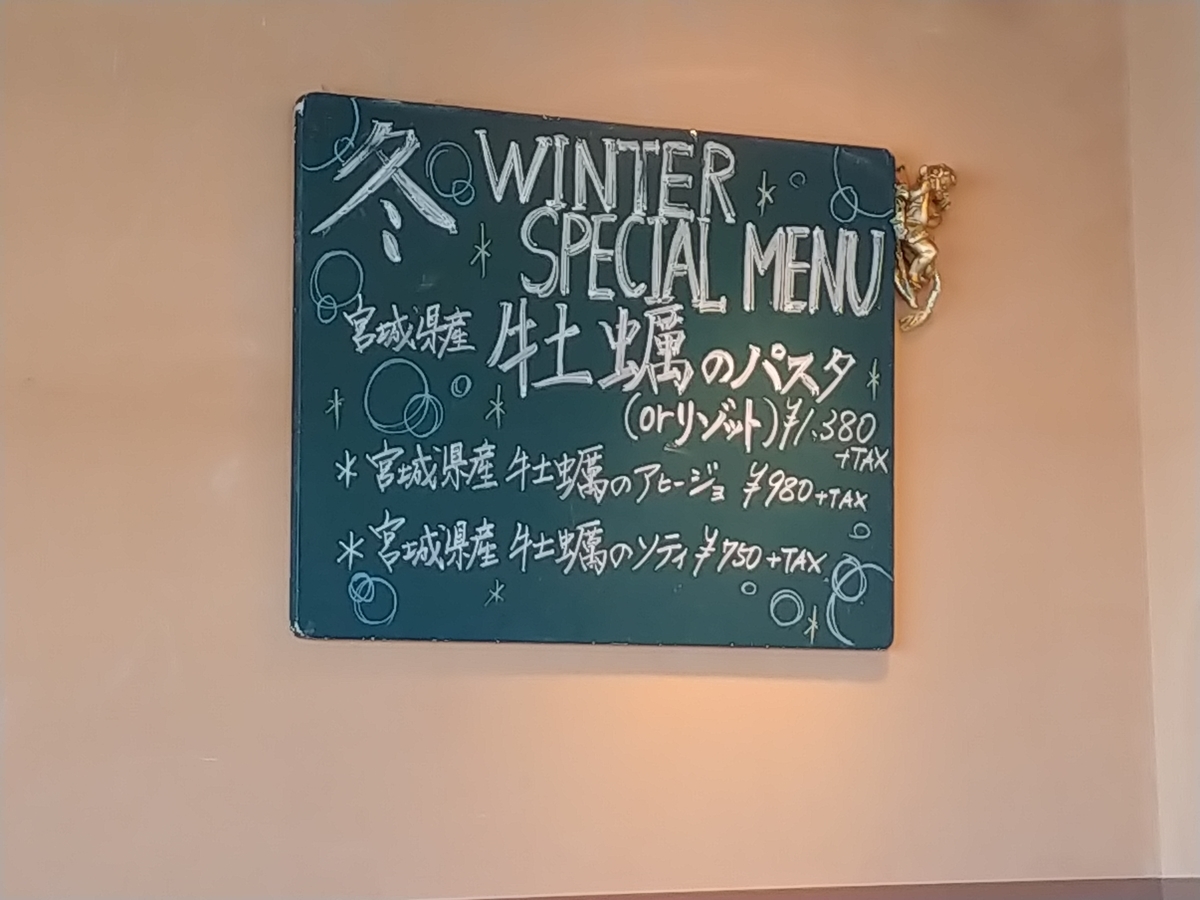 冬 WINTER
SPECIAL MENU
宮城県産 牡蠣のパスタ
(orリゾット)¥1.380
+TAX
* 宮城県産 牡蠣のアヒージョ ¥980+TAX
* 宮城県産 牡蠣のソティ ¥750+TAX